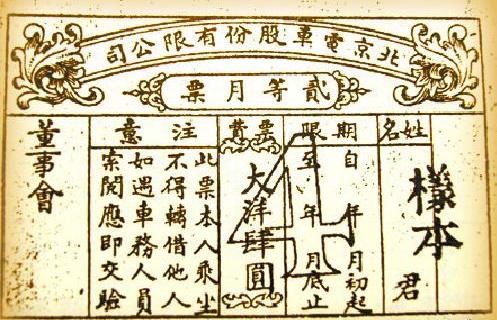 北京電車股份有限公司
貳等月票
姓名
樣本
君
期限
自 年 月初起
至 年 月底止
票費
大洋肆圓
4
注意
此票本人乘坐
不得轉借他人
如遇車務人員
索閱應即交驗
董事會